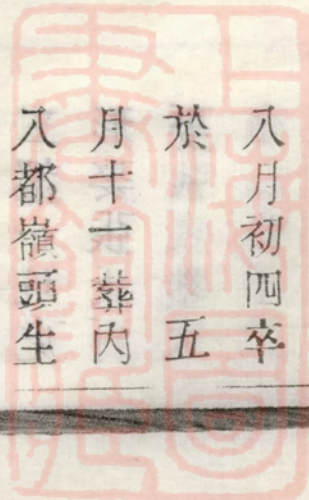 八月初四卒
於　　五
月十一葬内
八都嶺頭生